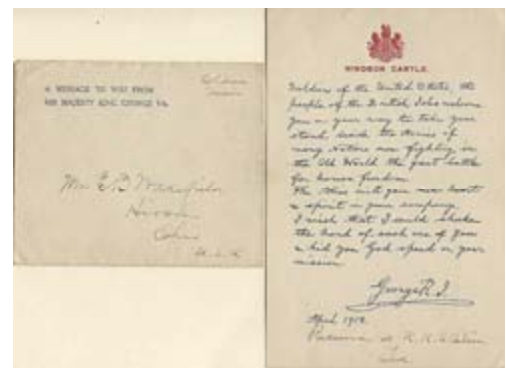 A MESSAGE TO YOU FROM
HIS MAJESTY KING GEORGE Vth.
Soldier's
Mr E B
Ohio
U.S.A.
WINDSOR CASTLE.
Soldiers of the United States, the
people of the British Isles welcome
you on your way to take your
stand beside the Armies of
many Nations now fighting in
the Old World the great battle
for human freedom.
The Allies will gain new heart
& spirit in your company.
I wish that I could shake
the hand of each one of you
& bid you God speed on your
mission.
George R.I.
April 1918.